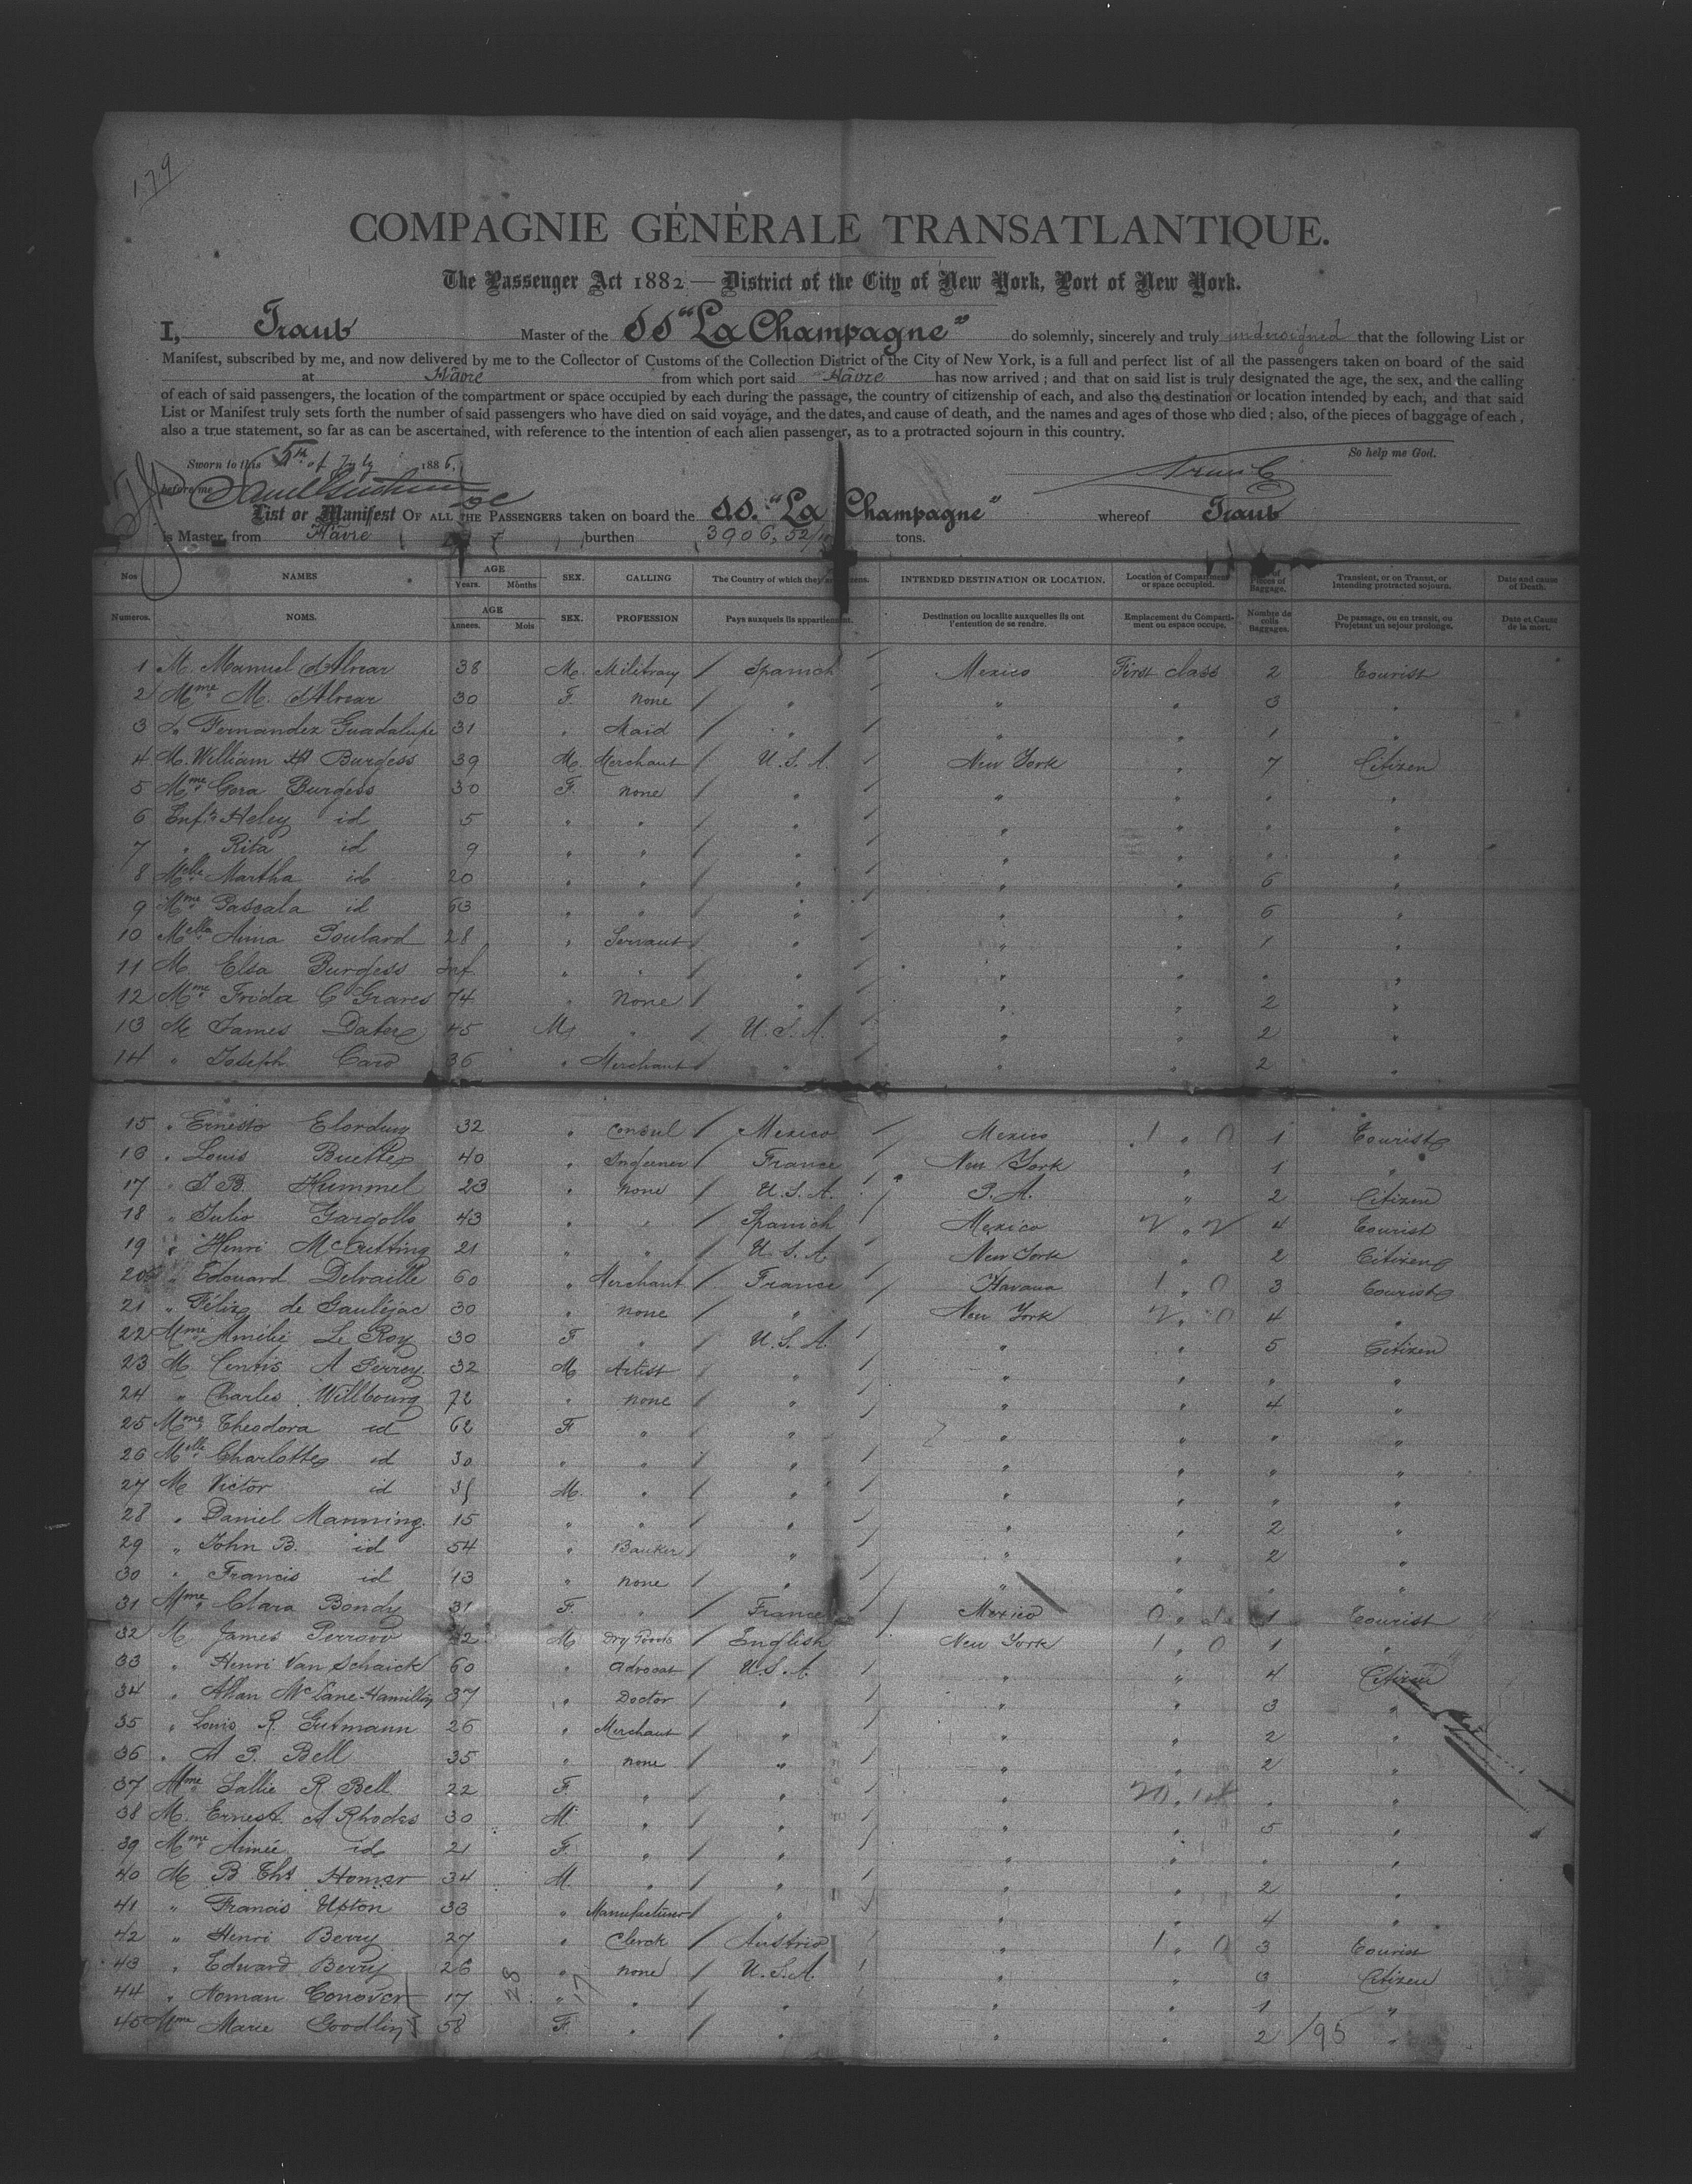 179
COMPAGNIE GÉNÉRALE TRANSATLANTIQUE.
The Passenger Act 1882 — District of the City of New York, Port of New York.
I, Traub Master of the SS "La Champagne" do solemnly, sincerely and truly undersigned that the following List or
Manifest, subscribed by me, and now delivered by me to the Collector of Customs of the Collection District of the City of New York, is a full and perfect list of all the passengers taken on board of the said
at Hâvre from which port said Hâvre has now arrived ; and that on said list is truly designated the age, the sex, and the calling
of each of said passengers, the location of the compartment or space occupied by each during the passage, the country of citizenship of each, and also the destination or location intended by each, and that said
List or Manifest truly sets forth the number of said passengers who have died on said voyage, and the dates, and cause of death, and the names and ages of those who died ; also, of the pieces of baggage of each ,
also a true statement, so far as can be ascertained, with reference to the intention of each alien passenger, as to a protracted sojourn in this country.
So help me God.
Sworn to this 5th of July 1886,
before me
Traub
List or Manifest OF ALL THE PASSENGERS taken on board the SS. "La Champagne" whereof Traub
is Master, from Hâvre burthen 3906, 52/ tons.
Nos NAMES AGE Years. Months SEX. CALLING The Country of which they are citizens. INTENDED DESTINATION OR LOCATION. Location of Compartment or space occupied. of Pieces of Baggage. Transient, or on Transit, or Intending protracted sojourn. Date and cause of Death.
Numeros. NOMS. AGE Annees. Mois SEX. PROFESSION Pays auxquels ils appartiennent. Destination ou localite auxquelles ils ont l'entention de se rendre. Emplacement du Compartiment ou espace occupe. Nombre de colis Baggages. De passage, ou en transit, ou Projetant un sejour prolonge. Date et Cause de la mort.
1 M. Manuel d'Alvear 38 M. Militrary / Spanich / Mexico First class 2 Tourist
2 Mme M. d'Alvear 30 F. none / " " " 3 "
3 " Fernandez Guadalupe 31 " Maid / " / " " 1 "
4 M. William H Burgess 39 M. Merchant / U.S.A. / New York " 7 Citizen
5 Mme Gora Burgess 30 F. none / " / " " " "
6 Enfts Heley id 5 " " / " / " " " "
7 " Rita id 9 " " / " / " " " "
8 Melle Martha id 20 " " / " / " " 6 "
9 Mme Pascala id 63 " " / " / " " 6 "
10 Melle Anna Poulard 28 " Servant / " / " " 1 "
11 M Elsa Burgess Inf. " " / " / " " " "
12 Mme Frida C Graves 74 " None / " / " " 2 "
13 M James Dater 45 M " / U.S.A. / " " 2 "
14 " Joseph Caro 36 " Merchant / " / " " 2 "
15 " Ernesto Elorduy 32 " Consul / Mexico / Mexico 1 " 0 1 Tourist
16 " Louis Buette 40 " Ingeener / France New York " 1 "
17 " J. B. Hummel 23 " none / U.S.A. / P.A. " 2 Citizen
18 " Julio Gargollo 43 " " / Spanich Mexico 2 " 2 4 Tourist
19 " Henri McCutting 21 " " / U.S.A. New York " 2 Citizen
20 " Edouard Delvaille 60 " Merchant / France / Havana 1 " 0 3 Tourist
21 " Félix de Gauléjac 30 " none / " New York 2 " 0 4 "
22 Mme Amélie Le Roy 30 F " / U.S.A. / " " 5 Citizen
23 M. Centis A Perrey 32 M Artist / " / " " " "
24 " Charles Willbourg 72 " none / " / " " 4 "
25 Mme Theodora id 62 F " / " / " " " "
26 Melle Charlotte id 30 " " / " / " " " "
27 M Victor id 35 M. " / " / " " " "
28 " Daniel Manning. 15 " " / " / " " 2 "
29 " John B. id 54 " Banker / " / " " 2 "
30 " Francis id 13 " none / " / " " " "
31 Mme Clara Bondy 31 F. " / France / Mexico 0 " 1 Tourist
32 M James Perrow 42 M Dry Goods / English New York 1 " 0 1 "
33 " Henri Van Schaick 60 " Advocat / U.S.A. / " " 4 Citizen
34 " Allan McLane-Hamilton 37 " Doctor / " / " " 3 "
35 " Louis R. Gutmann 26 " Merchant / " / " " 2 "
36 " A P. Bell 35 " none / " / " " 2 "
37 Mme Sallie R Bell 22 F. " / " / " " "
38 M. Ernest A Rhodes 30 M " / " / " " 5 "
39 Mme Aimée id 21 F. " / " / " " " "
40 M B. Ths Homer 34 M. " / " / " " 2 "
41 " Francis Upton 33 " Manufacturer / " / " " 4 "
42 " Henri Berry 27 " Clerck / Austria / " 1 " 0 3 Tourist
43 " Edward Berry 26 " none / U.S.A. / " " 3 Citizen
44 " Noman Conover 17 " " / " / " " 1 "
45 Mme Marie Goodlin 58 F. " / " " " 2 "
28 17
/95